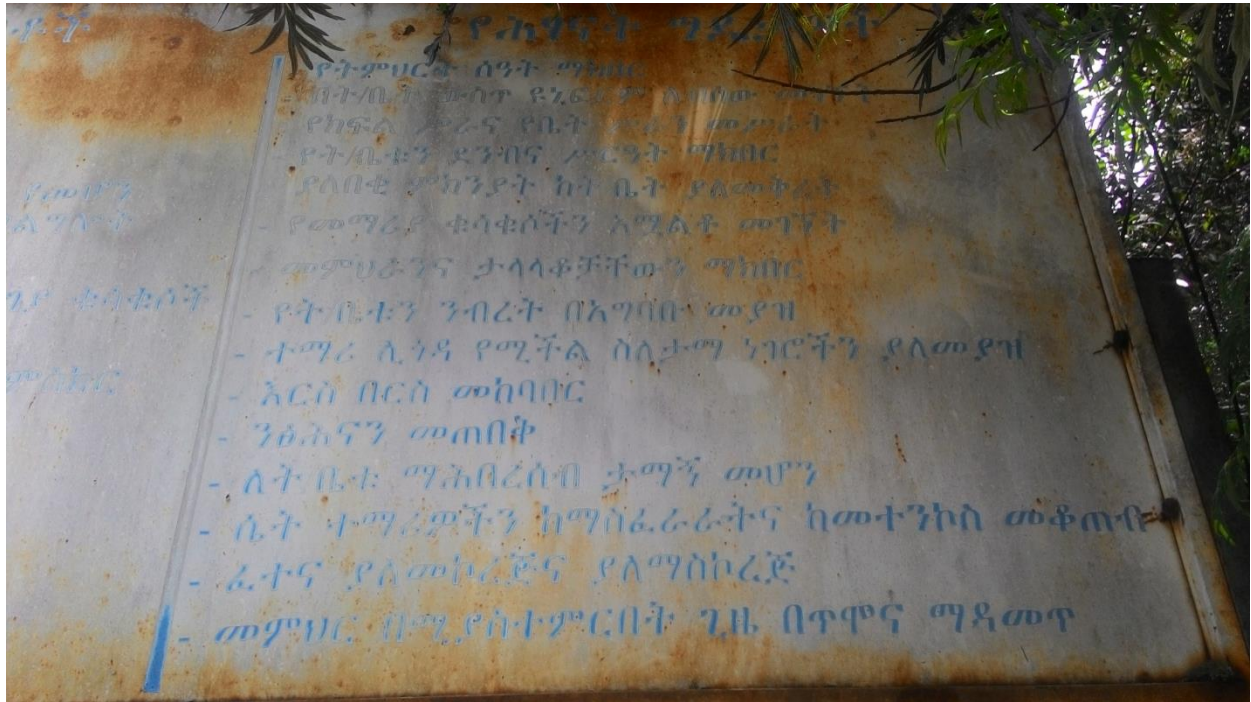 ቶች
የሕፃናት
የትምህርት ሰዓት ማክበር
በት/ቤት ውስጥ ዩኒፎርም ለብሰው መገኘት
የክፍል ሥራና የቤት ሥራን መሥራት
- የት/ቤቱን ደንብና ሥርዓት ማክበር
- ያለበቂ ምክንያት ከት ቤት ያለመቅረት
- የመማሪያ ቁሳቁሶችን አሟልቶ መገኘት
- መምህራንና ታላላቆቻቸውን ማክበር
- የት/ቤቱን ንብረት በአግባቡ መያዝ
- ተማሪ ሊጎዳ የሚችል ስለታማ ነገሮችን ያለመያዝ
- እርስ በርስ መከባበር
- ንፅሕናን መጠበቅ
- ለት/ቤቱ ማሕበረሰብ ታማኝ መሆን
- ሴት ተማሪዎችን ከማስፈራራትና ከመተንኮስ መቆጠብ
- ፈተና ያለመኮረጅና ያለማስኮረጅ
- መምህር በሚያስተምርበት ጊዜ በጥሞና ማዳመጥ
የመሆን
ልግሎት
ቁሳቁሶች